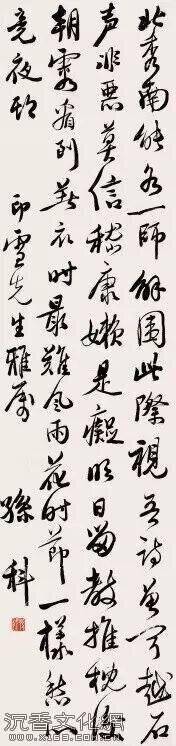 北秀南能各一師解圍此際視吾詩聞越石
聲非惡莫信嵇康嬾是癡明日當教推枕
朝看到衣時最難風雨花時節一樣愁人
竟夜
印雪先生雅屬
孫科
沉香文化網